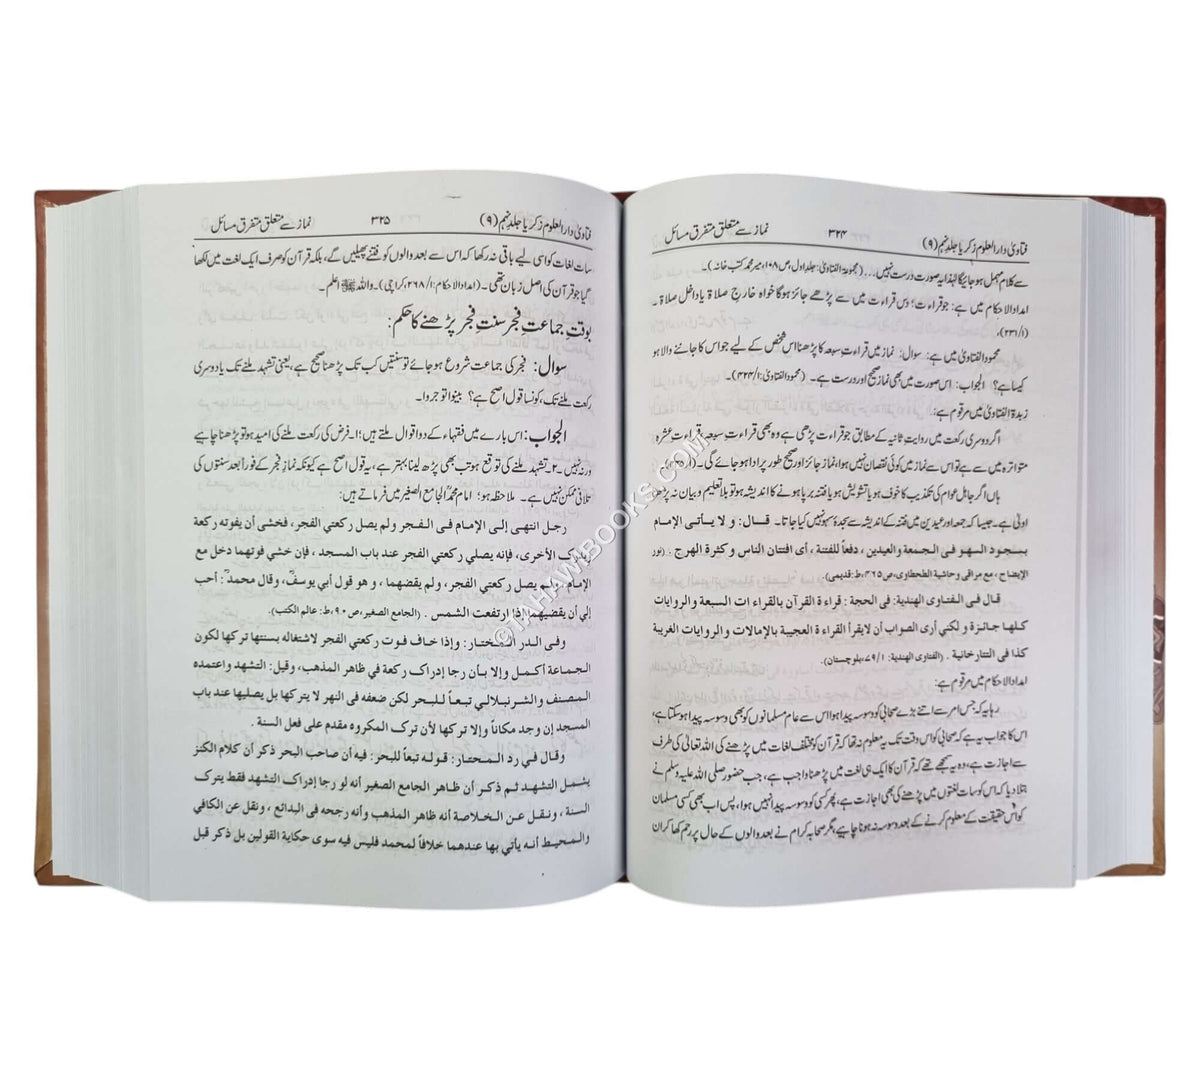 فتاویٰ دارالعلوم زکریا جلد نہم (۹) ۳۲۴ نماز سے متعلق متفرق مسائل
سے کلام مہمل ہو جائیگا لہٰذا یہ صورت درست نہیں... (مجموعۃ الفتاویٰ: جلد اول، ص ۱۰۸، میر محمد کتب خانہ)۔
امداد الاحکام میں ہے: جو قراءت؛ دس قراءت میں سے پڑھے جائز ہوگا خواہ خارج صلاۃ یا داخل صلاۃ۔
(۲۳۱/۱)۔
محمود الفتاویٰ میں ہے: سوال: نماز میں قراءتِ سبعہ کا پڑھنا اس شخص کے لیے جو اس کا جاننے والا ہو
کیسا ہے؟ الجواب: اس صورت میں بھی نماز صحیح اور درست ہے۔ (محمود الفتاویٰ: ۴۲۴/۱)۔
زبدۃ الفتاویٰ میں مرقوم ہے:
اگر دوسری رکعت میں روایتِ ثانیہ کے مطابق جو قراءت پڑھی ہے وہ بھی قراءتِ سبعہ، قراءتِ عشرہ
متواترہ میں سے ہے تو اس سے نماز میں کوئی نقصان نہیں ہوا، نماز جائز اور صحیح طور پر ادا ہو جائے گی۔
ہاں اگر جاہل عوام کی تکذیب کا خوف ہو یا تشویش ہو یا فتنہ برپا ہونے کا اندیشہ ہو تو بلا تعلیم و بیان نہ پڑھنا
اولیٰ ہے۔ جیسا کہ جمعہ اور عیدین میں فتنہ کے اندیشہ سے سجدۂ سہو نہیں کیا جاتا۔ قال: و لا یأتی الإمام
بسجود السهو فی الجمعة والعیدین، دفعاً للفتنة، أی افتتان الناس و کثرة الهرج. (نور
الإیضاح، مع مراقی وحاشیة الطحطاوی، ص ۴۶۵، ط: قدیمی)
قال فی الفتاوی الهندیة: فی الحجة: قراءة القرآن بالقراءات السبعة والروایات
کلها جائزة و لکنی أری الصواب أن لا یقرأ القراءة العجیبة بالإمالات والروایات الغریبة
کذا فی التتارخانیة. (الفتاوی الهندیة: ۷۹/۱، بلوچستان)
امداد الاحکام میں مرقوم ہے:
رہا یہ کہ جس امر سے اتنے بڑے صحابی کو وسوسہ پیدا ہوا اس سے عام مسلمانوں کو بھی وسوسہ پیدا ہوسکتا ہے،
اس کا جواب یہ ہے کہ صحابی کو اس وقت تک یہ معلوم نہ تھا کہ قرآن کو مختلف لغات میں پڑھنے کی اللہ تعالیٰ کی طرف
سے اجازت ہے، وہ یہ سمجھے تھے کہ قرآن کا ایک ہی لغت میں پڑھنا واجب ہے، جب حضور صلی اللہ علیہ وسلم نے
بتلا دیا کہ اس کو سات لغتوں میں پڑھنے کی بھی اجازت ہے، پھر کسی کو وسوسہ پیدا نہیں ہوا، پس اب بھی کسی مسلمان
کو اس حقیقت کے معلوم کرنے کے بعد وسوسہ نہ ہونا چاہیے، مگر صحابہ کرام نے بعد والوں کے حال پر رحم کھا کر ان
فتاویٰ دارالعلوم زکریا جلد نہم (۹) ۳۲۵ نماز سے متعلق متفرق مسائل
سات لغات کو اسی لیے باقی نہ رکھا کہ اس سے بعد والوں کو فتنے پھیلیں گے، بلکہ قرآن کو صرف ایک لغت میں لکھا
گیا جو قرآن کی اصل زبان تھی۔ (امداد الاحکام: ۲۶۸/۱، کراچی)۔ واللہ ﷻ اعلم۔
بوقتِ جماعتِ فجر سنتِ فجر پڑھنے کا حکم:
سوال: فجر کی جماعت شروع ہو جائے تو سنتیں کب تک پڑھنا صحیح ہے، یعنی تشہد ملنے تک یا دوسری
رکعت ملنے تک، کونسا قول اصح ہے؟ بینوا توجروا۔
الجواب: اس بارے میں فقہاء کے دو اقوال ملتے ہیں؛ ۱۔ فرض کی رکعت ملنے کی امید ہو تو پڑھنا چاہیے
ورنہ نہیں۔ ۲۔ تشہد ملنے کی توقع ہو تب بھی پڑھ لینا بہتر ہے، یہ قول اصح ہے کیونکہ نماز فجر کے فوراً بعد سنتوں کی
تلافی ممکن نہیں ہے۔ ملاحظہ ہو؛ امام محمدؒ الجامع الصغیر میں فرماتے ہیں:
رجل انتهی إلی الإمام فی الفجر ولم یصل رکعتی الفجر، فخشی أن یفوته رکعة
ویدرک الأخری، فإنه یصلی رکعتی الفجر عند باب المسجد، فإن خشی فوتهما دخل مع
الإمام، ولم یصل رکعتی الفجر، ولم یقضهما، و هو قول أبی یوسفؒ، وقال محمدؒ: أحب
إلی أن یقضیهما إذا ارتفعت الشمس. (الجامع الصغیر، ص ۹۰، ط: عالم الکتب)
وفی الدر المختار: وإذا خاف فوت رکعتی الفجر لاشتغاله بسنتها ترکها لکون
الجماعة أکمل وإلا بأن رجا إدراک رکعة فی ظاهر المذهب، وقیل: التشهد واعتمده
المصنف والشرنبلالی تبعاً للبحر لکن ضعفه فی النهر لا یترکها بل یصلیها عند باب
المسجد إن وجد مکاناً وإلا ترکها لأن ترک المکروه مقدم علی فعل السنة.
وقال فی رد المحتار: قوله تبعاً للبحر: فیه أن صاحب البحر ذکر أن کلام الکنز
یشمل التشهد ثم ذکر أن ظاهر الجامع الصغیر أنه لو رجا إدراک التشهد فقط یترک
السنة، ونقل عن الخلاصة أنه ظاهر المذهب وأنه رجحه فی البدائع، ونقل عن الکافی
والمحیط أنه یأتی بها عندهما خلافاً لمحمد فلیس فیه سوی حکایة القولین بل ذکر قبل
©TAHAWIBOOKS.COM